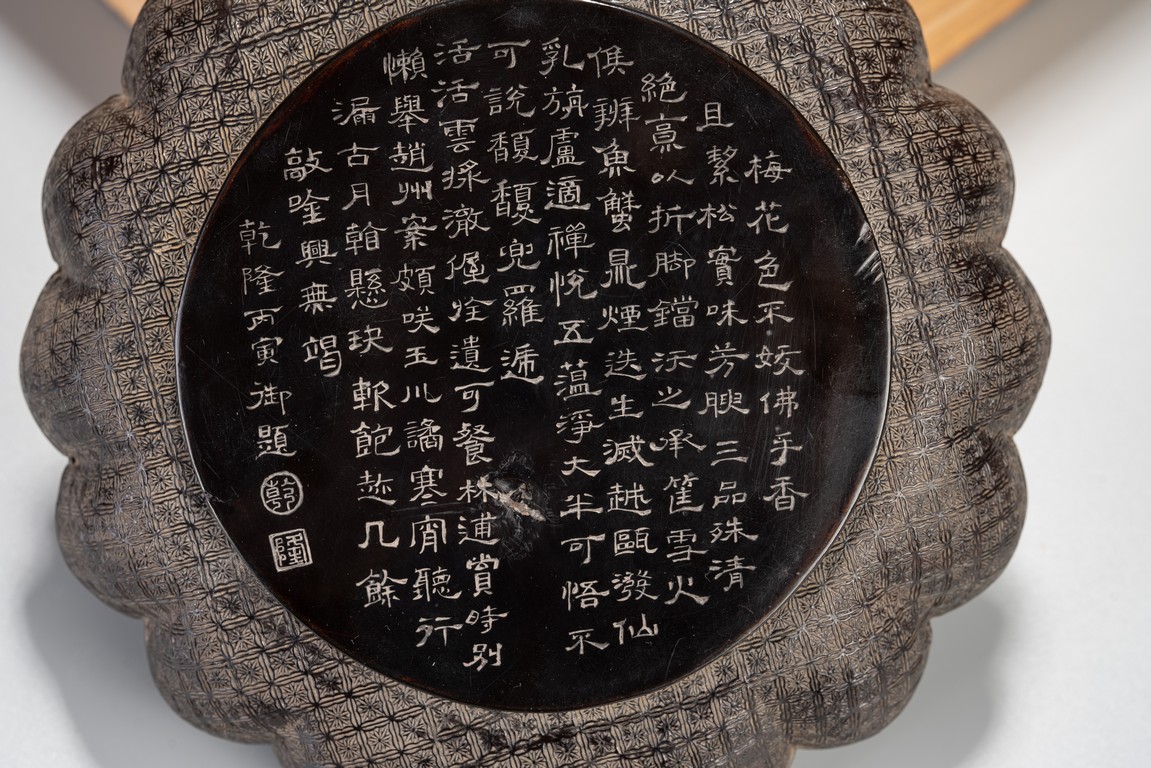 梅花色不妖佛手香
且絜松實味芳腴三品殊清
絕亯以折脚鐺沃之承筐雪火
候辨魚蟹鼎煙迭生滅越甌潑仙
乳旃廬適禪悅五蕰淨大半可悟不
可說馥馥兜羅遞
活活雲漿澈偓佺遺可餐林逋賞時別
懶舉趙州案頗咲玉川譎寒宵聽行
漏古月翰懸玦軟飽趁几餘
敲唫興無竭
乾隆丙寅御題
乾
隆